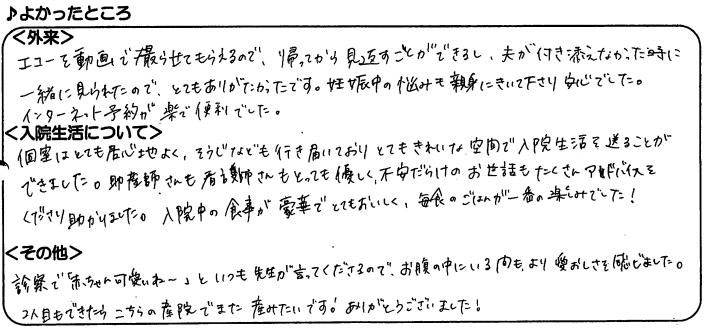 ♪よかったところ
<外来>
エコーを動画で撮らせてもらえるので、帰ってから見返すことができるし、夫が付き添えなかった時に
一緒に見られたので、とてもありがたかったです。妊娠中の悩みも親身にきいて下さり安心でした。
インターネット予約が楽で便利でした。
<入院生活について>
個室はとても居心地よく、そうじなども行き届いておりとてもきれいな空間で入院生活を送ることが
できました。助産師さんも看護師さんもとっても優しく、不安だらけのお世話もたくさんアドバイスを
くださり助かりました。入院中の食事が豪華でとてもおいしく、毎食のごはんが一番の楽しみでした!
<その他>
診察で「赤ちゃん可愛いね〜」といつも先生が言ってくださるので、お腹の中にいる間も、より愛おしさを感じました。
2人目もできたらこちらの産院でまた産みたいです!ありがとうございました!